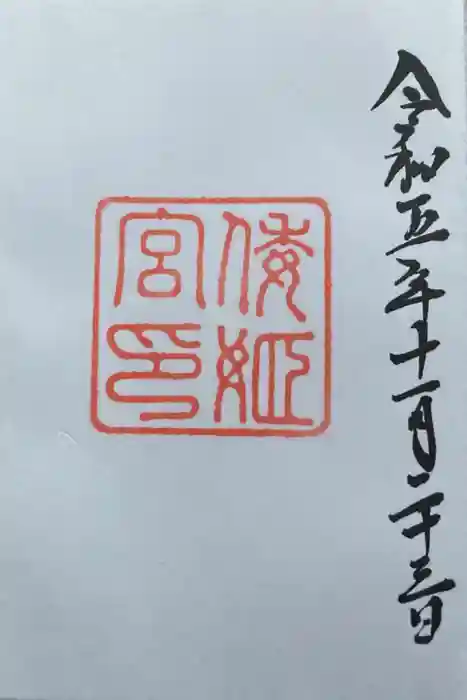 令和五年十一月二十三日
倭姫
宮印